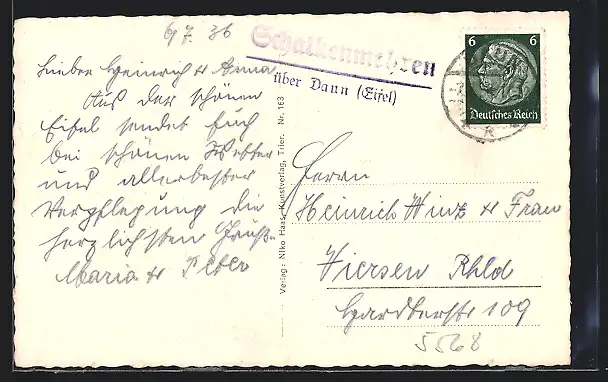 6/7. 36
Lieber Heinrich & Anna
Aus der schönen
Eifel sendet Euch
bei schönen Wetter
und allerbester
Verpflegung die
herzlichsten Grüße
Maria & Peter
Schalkenmehren
über Daun (Eifel)
6 6
Deutsches Reich
Verlag: Niko Haas, Kunstverlag, Trier. Nr. 163
Herrn
Heinrich Winz & Frau
Viersen Rhld
109
5568